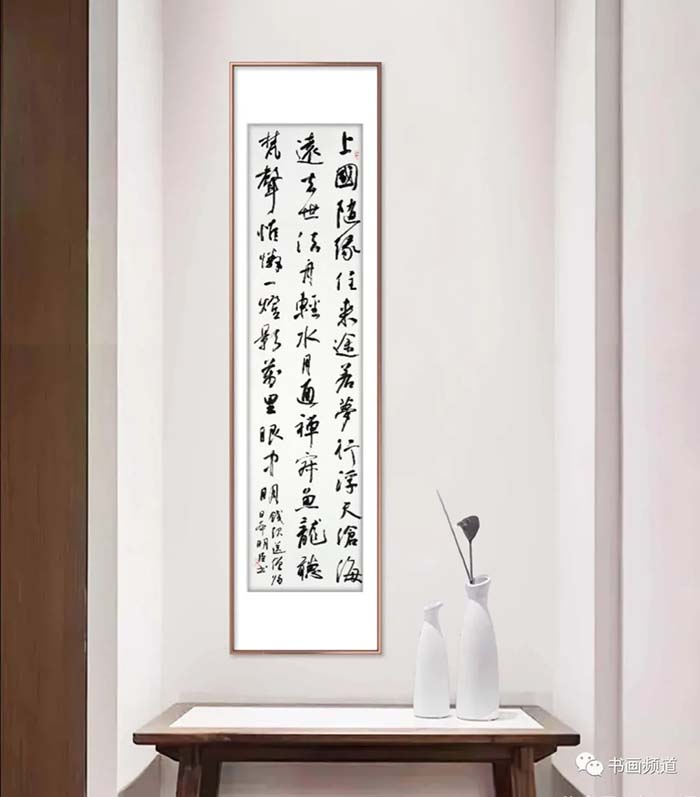 上國隨緣住來途若夢行浮天滄海
遠去世法舟輕水月通禪寂魚龍聽
梵聲惟憐一燈影萬里眼中明
錢起送僧歸
日本明書
书画频道